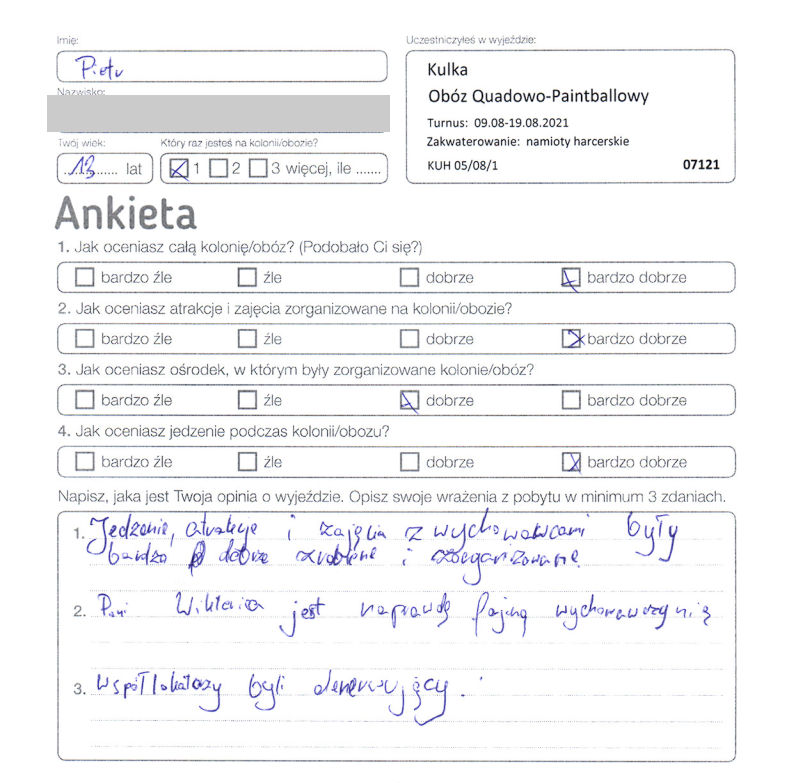 Imię:
Piotr
Nazwisko:
Twój wiek:
13 lat
Który raz jesteś na kolonii/obozie?
1 2 3 więcej, ile .......
Uczestniczyłeś w wyjeździe:
Kulka
Obóz Quadowo-Paintballowy
Turnus: 09.08-19.08.2021
Zakwaterowanie: namioty harcerskie
KUH 05/08/1 07121
Ankieta
1. Jak oceniasz całą kolonię/obóz? (Podobało Ci się?)
bardzo źle źle dobrze bardzo dobrze
2. Jak oceniasz atrakcje i zajęcia zorganizowane na kolonii/obozie?
bardzo źle źle dobrze bardzo dobrze
3. Jak oceniasz ośrodek, w którym były zorganizowane kolonie/obóz?
bardzo źle źle dobrze bardzo dobrze
4. Jak oceniasz jedzenie podczas kolonii/obozu?
bardzo źle źle dobrze bardzo dobrze
Napisz, jaka jest Twoja opinia o wyjeździe. Opisz swoje wrażenia z pobytu w minimum 3 zdaniach.
1. Jedzenie, atrakcje i zajęcia z wychowawcami były
bardzo dobrze zrobione i zorganizowane.
2. Pani Wiktoria jest naprawdę fajną wychowawczynią
3. współlokatorzy byli denerwujący.